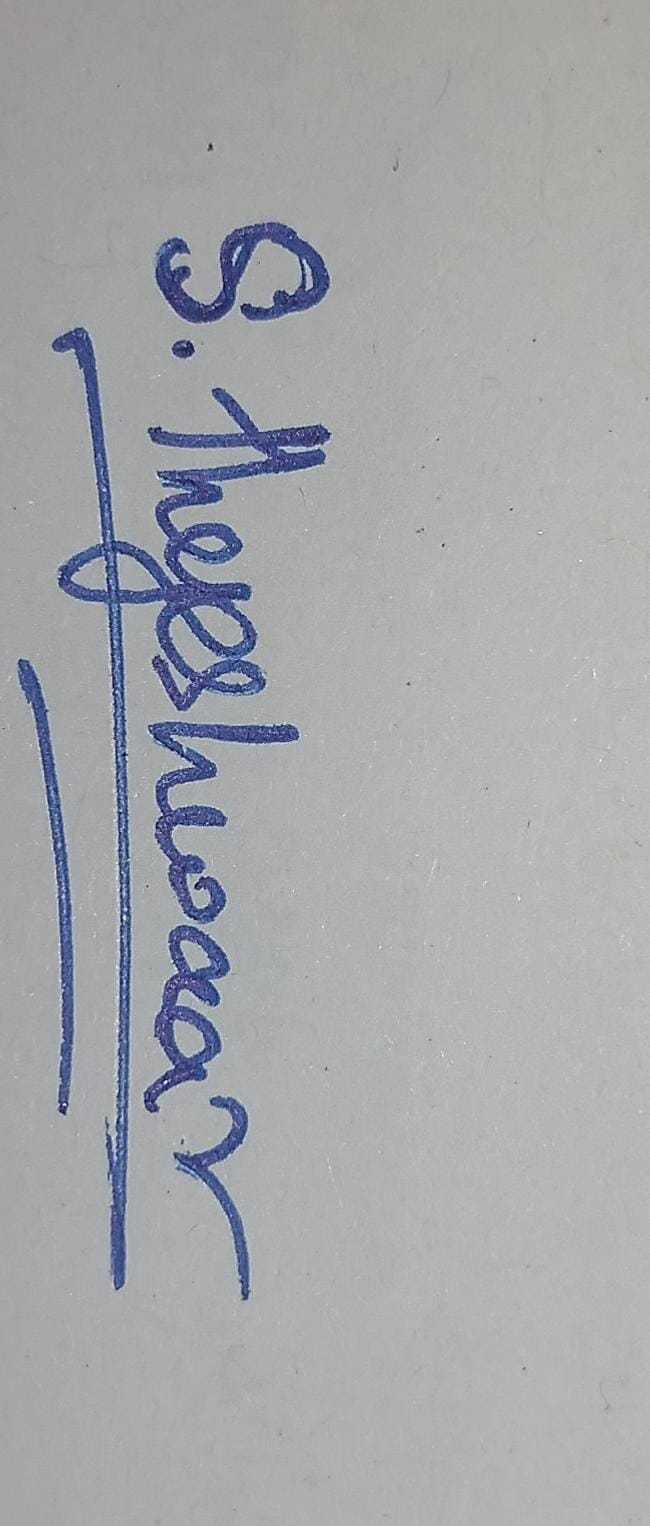 S. Theyeshwaar